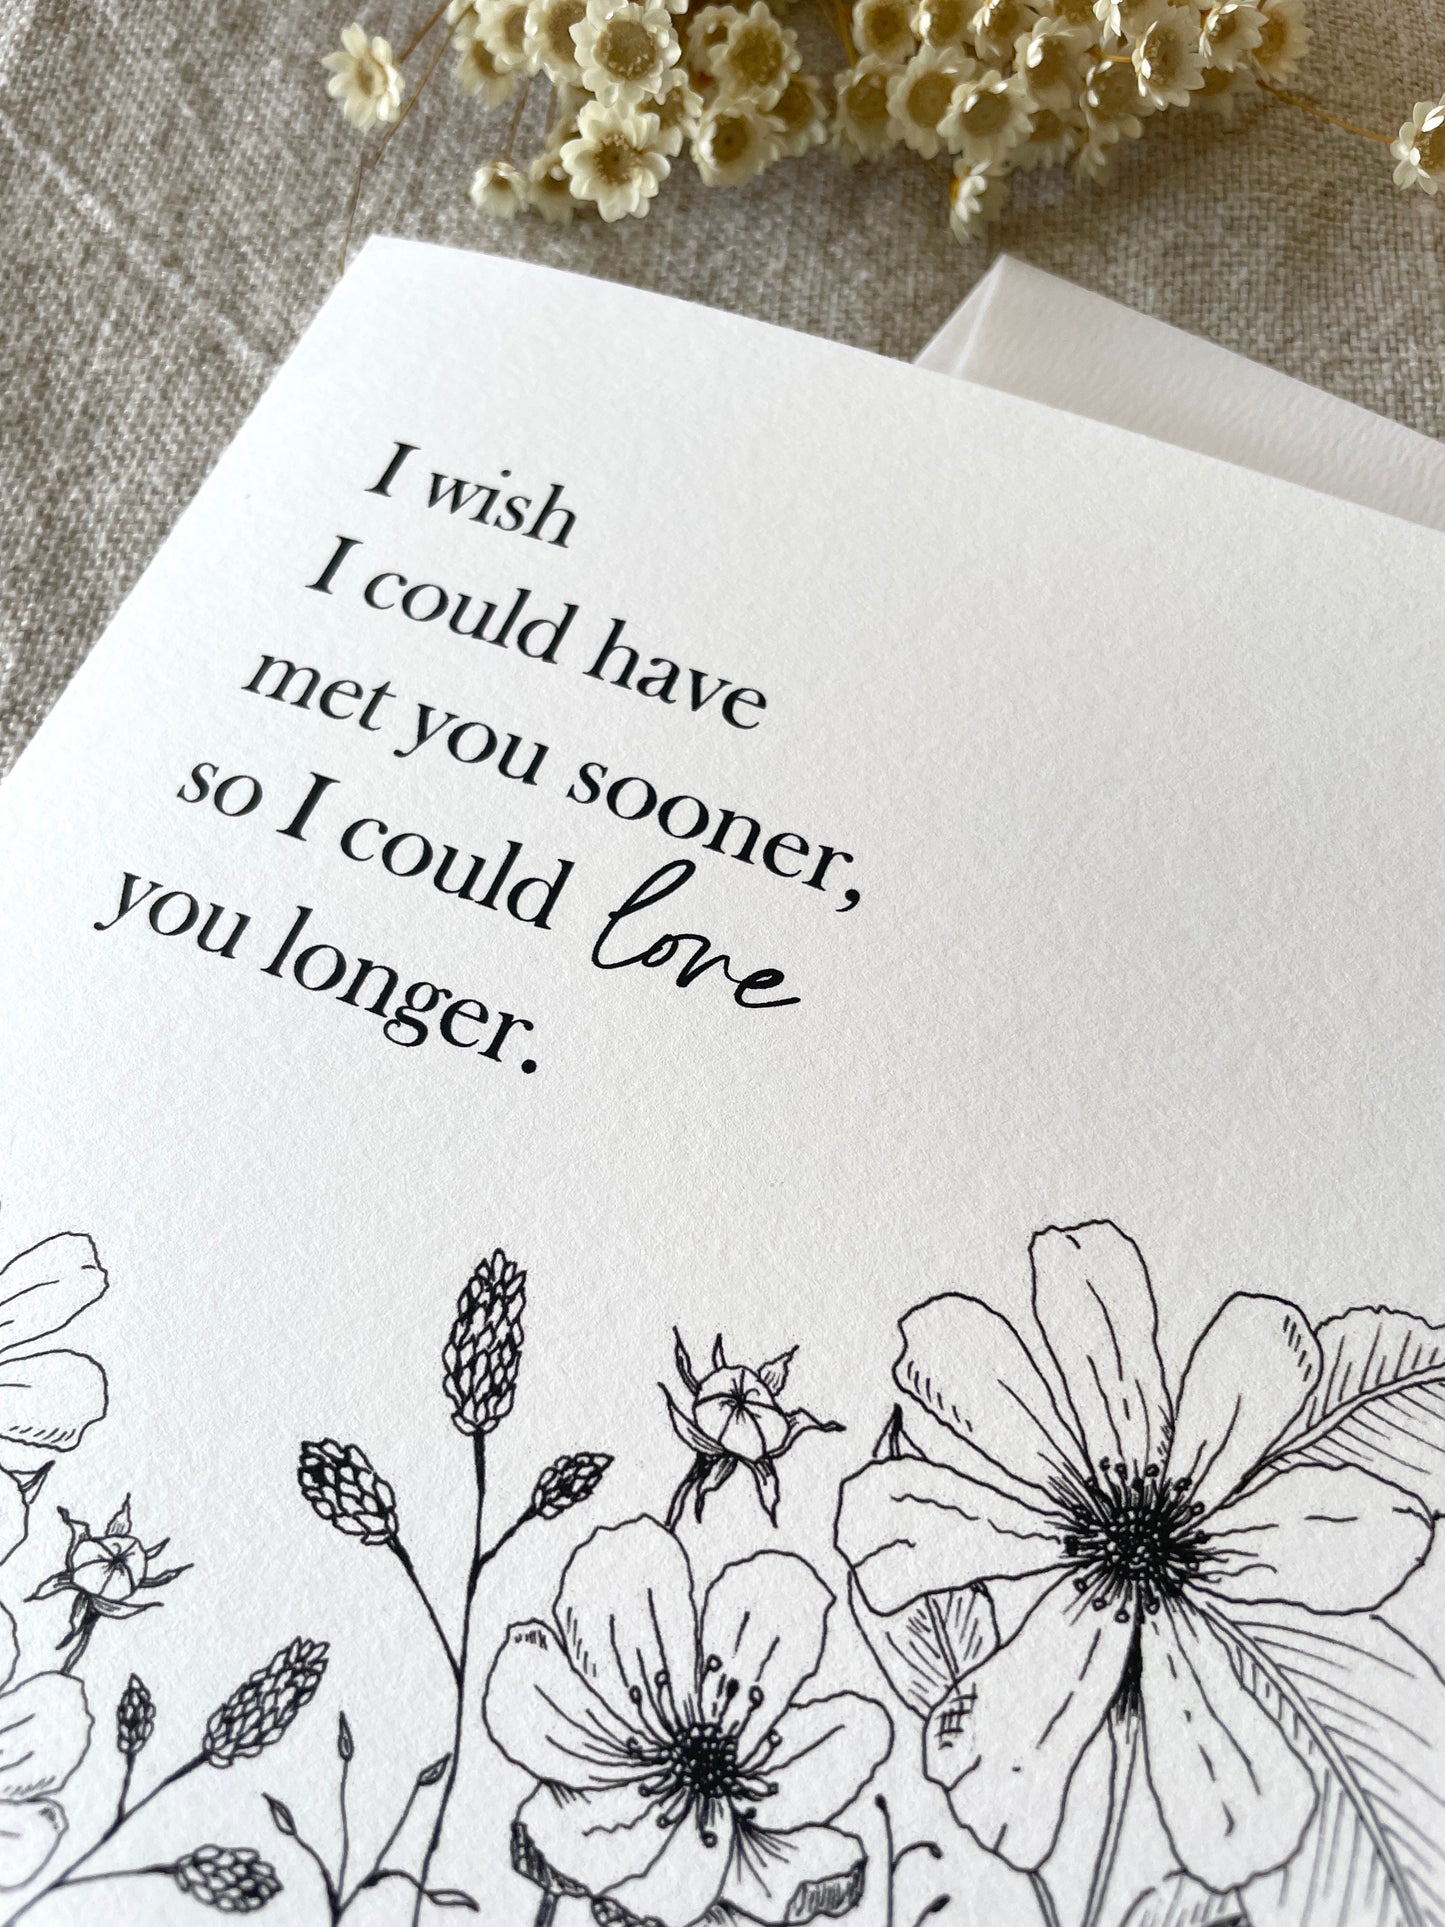 I wish
I could have
met you sooner,
so I could love
you longer.